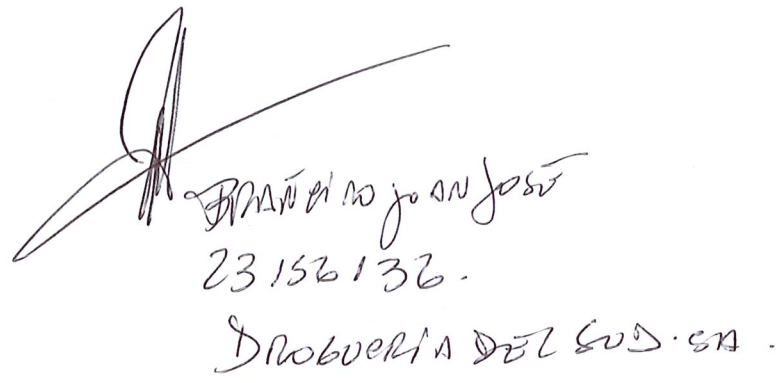 BRAÑEIRO JUAN JOSÉ
23156136.
DROGUERIA DEL SUD. SA.